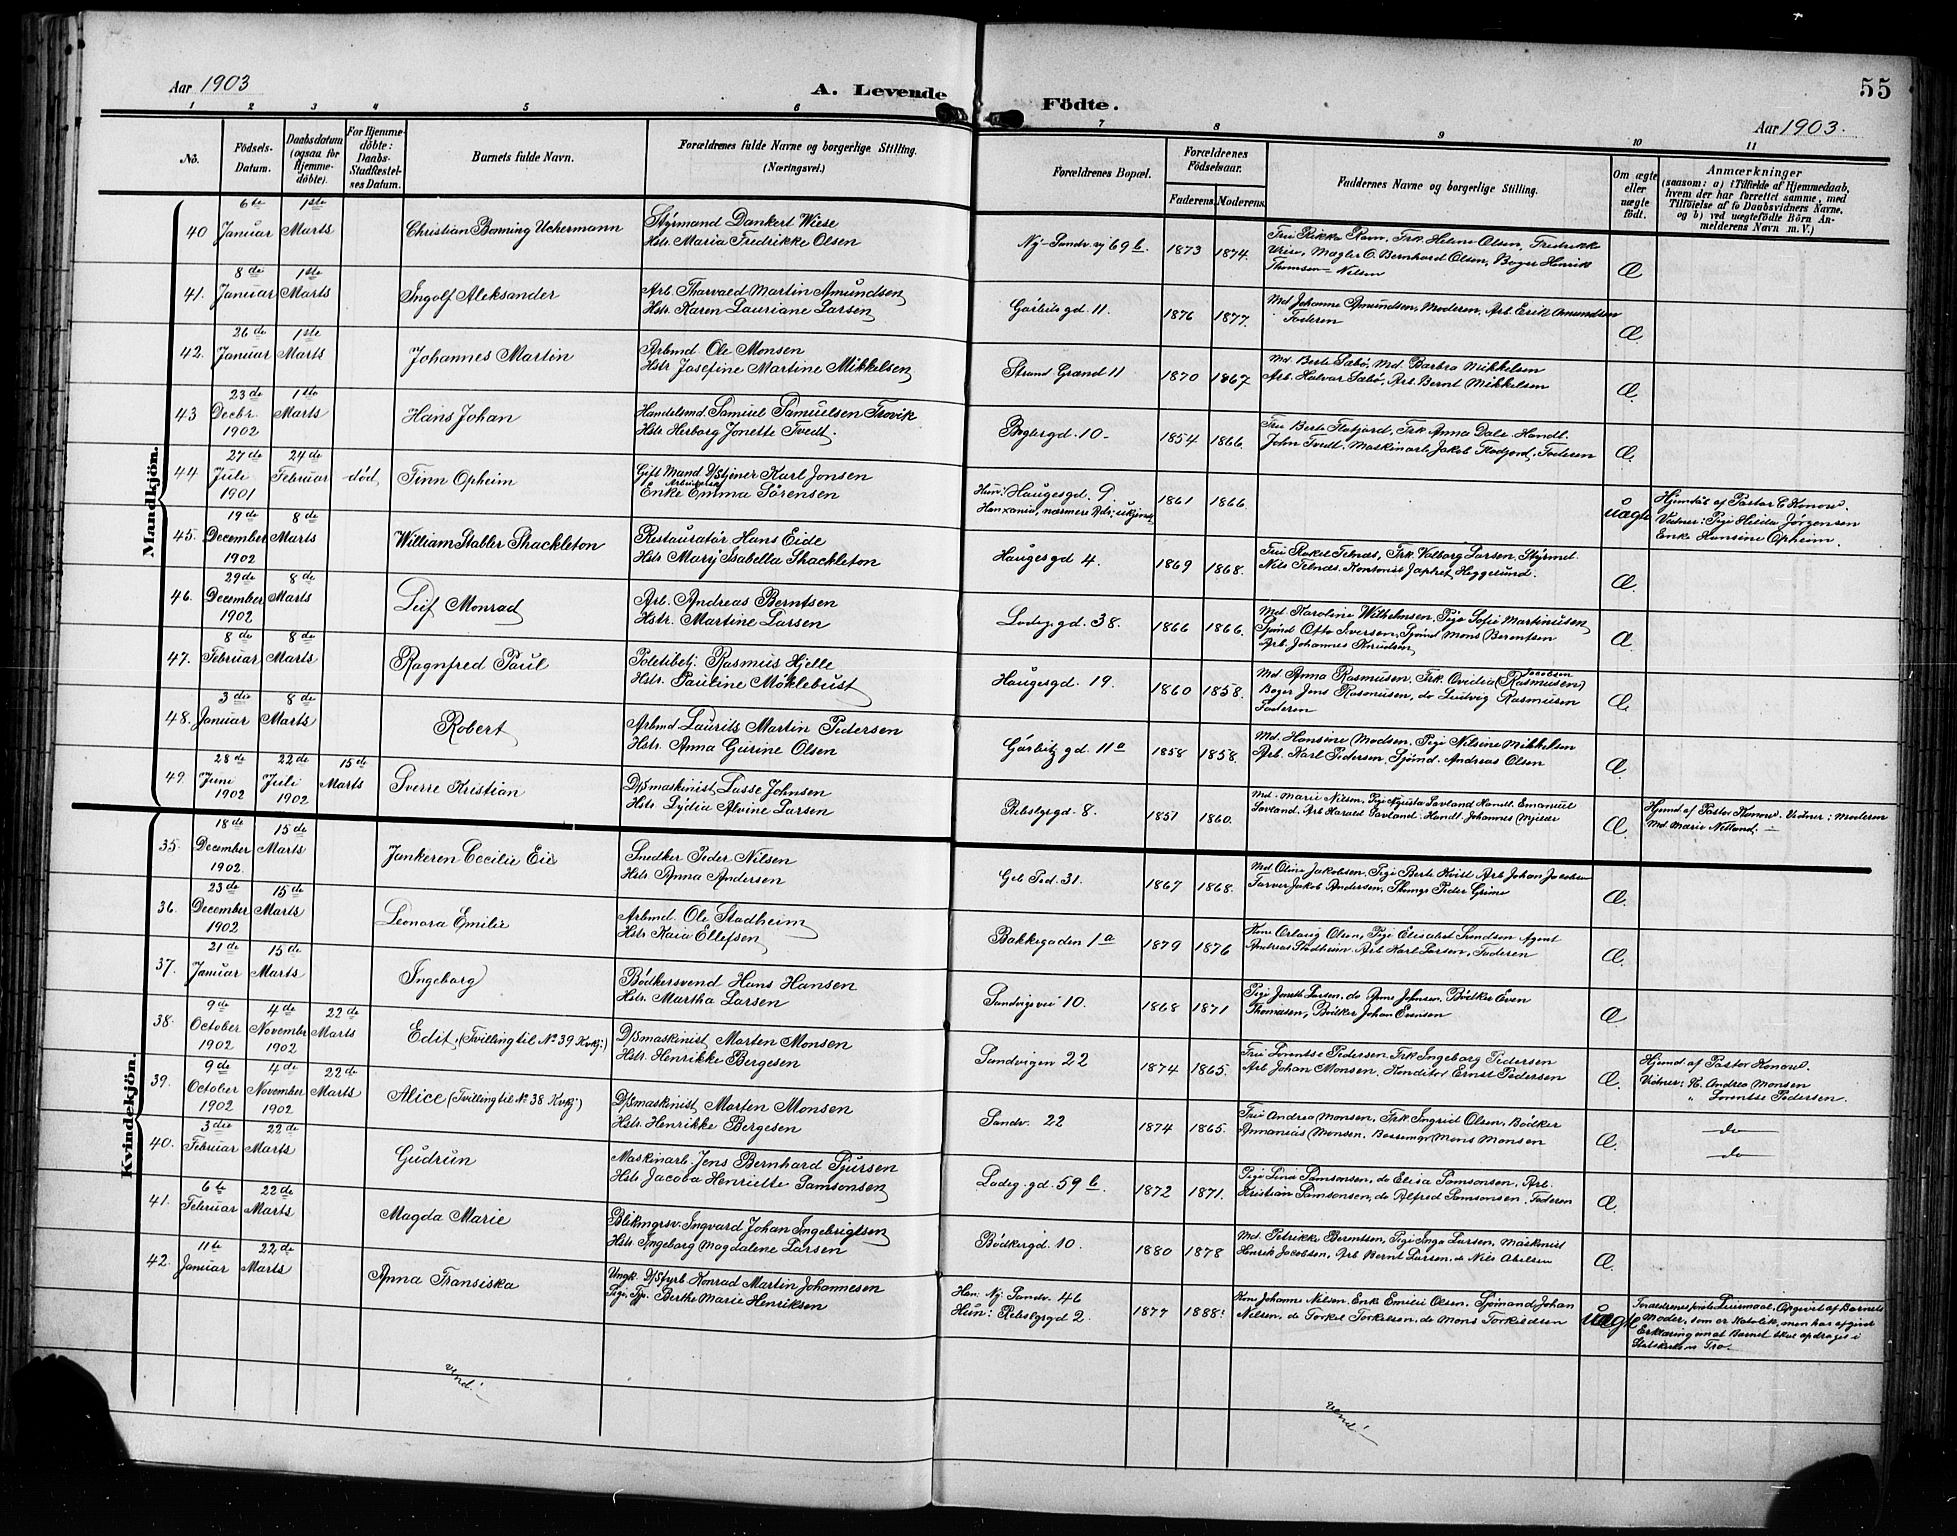 55
Aar 1903
A. Levende
Födte.
Aar 1903.
1 2 3 4 5 6 7 8 9 10 11
No.
Födsels-Datum.
Daabsdatum (ogsaa for Hjemmedöbte).
For Hjemmedöbte: Daabs-Stadfæstelses Datum.
Barnets fulde Navn.
Forældrenes fulde Navne og borgerlige Stilling.
(Næringsvei.)
Forældrenes Bopæl.
Forældrenes Födselsaar.
Faderens. Moderens.
Faddernes Navne og borgerlige Stilling.
Om ægte eller uægte födt.
Anmærkninger
(saasom: a) i Tilfælde af Hjemmedaab, hvem der har forrettet samme, med Tilföielse af to Daabsvidners Navne, og b) ved uægtefödte Börn Anmelderens Navn m. V.)
Mandkjön.
40 6te Januar 1ste Marts Christian Bonning Uchermann
Styrmand Dankert Wiese
Hstr. Maria Fredrikke Olsen
Ny-Sandv.vj 69 b 1873 1874.
Mægler O. Bernhard Olsen, Bager Henrik
Thomsen Nilsen Æ
41. 8de Januar 1ste Marts Ingolf Aleksander
Arb. Tharvald Martin Amundsen
Hstr. Karen Lauriane Larsen
Gårbitsgd 11. 1876 1877.
Md Johanne Amundsen, Moderen, Arb. Erik Amundsen
Faderen Æ
42. 26de Januar 1ste Marts Johannes Martin
Arbmd Ole Monsen
Hstr Josefine Martine Mikkelsen
Strand Grænd 11 1870 1867
Md. Berte Sæbö, Md. Barbra Mikkelsen
Arb. Halvar Sæbö, Arb. Bernt Mikkelsen Æ.
43 23de Decbr. 1902 1ste Marts Hans Johan
Handelsmd Samuel Samuelsen Trovik
Hstr Herborg Jonette Tvedt.
Bøglergd. 10. 1854 1866.
Fru Berte Flatjord, Frk Anna Dale. Handl.
John Tvedt. Maskinarb Jakob Flodjord, Faderen Æ.
44 27de Juli 1901 24de Februar död Finn Opheim
Gift Mand D/Stjener Karl Jonsen
Arbeiderske
Enke Emma Sörensen
Hun: Haugesgd. 9 1861 1866.
uægte
Hjemdöbt af Pastor C Konow.
Vidner: Pige Hilda Jörgensen
Enke Hansine Opheim.
45. 19de December 1902 8de Marts William Stabler Shackleton
Restauratør Hans Eide
Hstr Mary Isabella Shackleton
Haugesgd 4. 1869 1868.
Fru Rakel Telnæs, Frk. Valborg Larsen, Styrmd.
Nils Telnæs. Kontorist Japhet Heggelund. Æ.
46. 29de December 1902 8de Marts Leif Monrad
Arb. Andreas Berntsen
Hstr. Martine Larsen
Ladeg.gd. 38. 1866 1866.
Md Karoline Wilhelmsen, Pige Sofie Martinusen
Sjömd Otto Iversen, Sjömd Mons Berentsen
Arb. Johannes Knudsen Æ.
47. 8de Februar 8de Marts Ragnfred Paul
Politibetj. Rasmus Hjelle
Hstr. Pauline Möklebust
Haugesgd. 19. 1860 1858.
Jacobsen
Md Anna Rasmusen, Frk. Ovidia (Rasmusen)
Bager Jens Rasmusen, do Ludvig Rasmusen
Faderen Æ
48. 3die Januar 8de Marts Robert
Arbmd Laurits Martin Pedersen
Hstr. Anna Gurine Olsen
Gårbitzgd 11a 1858 1858.
Md. Hansine Madsen. Pige Nilsine Mikkelsen
Arb. Karl Pedersen, Sjömd. Andreas Olsen Æ.
49 28de Juni 1902 22de Juli 1902 15de Marts Sverre Kristian
D/Smaskinist Lasse Johnsen
Hstr. Lydia Alvine Larsen
Rebslgrgd. 8 1851 1860.
Md. Marie Nilsen, Pige Agusta Lavland Handl. Emanuel
Lavland. Arb Harald Lavland. Handl. Johannes Mjelde Æ.
Hjemd af Pastor Konow. Vidner: Moderen
Md Marie Nilland.
Kvindekjön.
35. 18de December 1902. 15de Marts Jankeren Cecilie Eie
Snedker Peder Nilsen
Hstr. Anna Andersen
Geb Ped. 31. 1867 1868.
Md Oline Jakobsen, Pige Berte Kvist Arb Johan Jacobsen
Farver Jakob Andersen, Peder Grime Æ.
36. 23de December 1902 15de Marts Leonora Emilie
Arbmd. Ole Stadheim
Hstr. Kaia Ellefsen
Bakkegaden 1a 1879 1876
Kone Orlaug Olsen, Pige Elisabet Sundsen Agent
Andreas Stadheim. Arb Karl Larsen, Faderen Æ.
37. 21de Januar 15de Marts Ingeborg
Bødkersvend Hans Hansen
Hstr. Martha Larsen
Sandvigsvei 10. 1868 1871
Pige Jonette Larsen, do Anne Johnsen. Bødker Even
Thomasen, Bødker Johan Evensen Æ.
38. 9de October 1902 4de November 1902 22de Marts Edit, (Tvilling til No 39 Kvkj:)
D/Smaskinist Marten Monsen
Hstr. Henrikke Bergesen
Sandvigen 22 1874 1865.
Fru Lorentse Pedersen, Frk Ingeborg Pedersen
Arb Johan Monsen, Konditor Ernst Pedersen Æ.
Hjemd af Pastor Konow.
Vidner: H. Andrea Monsen
" Lorentse Pedersen.
39. 9de October 1902 4de November 1902 22de Marts Alice (Tvilling til No 38 Kvkj:)
D/Smaskinist Marten Monsen
Hstr. Henrikke Bergesen
Sandv. 22 1874 1865.
Fru Andrea Monsen, Frk. Ingrid Olsen, Bødker
Annanias Monsen. Bossemgr Mons Monsen Æ.
do
do
40. 3die Februar 22de Marts Gudrun
Maskinarb. Jens Bernhard Sjursen
Hstr Jacoba Henriette Samsonsen
Ladeg.gd. 59 b. 1872 1871.
Pige Lina Samsonsen, do Elisa Samsonsen, Arb.
Kristian Samsonsen, do Alfred Samsonsen. Faderen Æ.
41. 6te Februar 22de Marts Magda Marie
Blikmgrsv. Ingvard Johan Ingebrigtsen
Hstr. Ingeborg Magdalene Larsen
Bødkergd. 10. 1880 1878
Md. Petrikke Berentsen, Pige Inga Larsen, Maskinist
Henrik Jacobsen, Arb Bernt Larsen, do Nils Akelsen Æ.
42. 11te Januar 22de Marts Anna Fransiska
Ungk. D/Sfyrb Konrad Martin Johannesen
Pige, Tj. Berthe Marie Henriksen
Han: Ny Sandv. 46
Hun: Rebslgrgd 2. 1877 1888!
Kone Johanne Nilsen, Enke Emilie Olsen. Sjömand Johan
Nilsen, do Torkel Torkelsen, do Mons Torkildsen uægte
Forældrenes første Leiermaal, Opgivet af Barnets
Moder, som er Katolik, men har afgivet
Erklæring om at Barnet skal opdrages i
Statskirkens Tro.
vend!
vend!